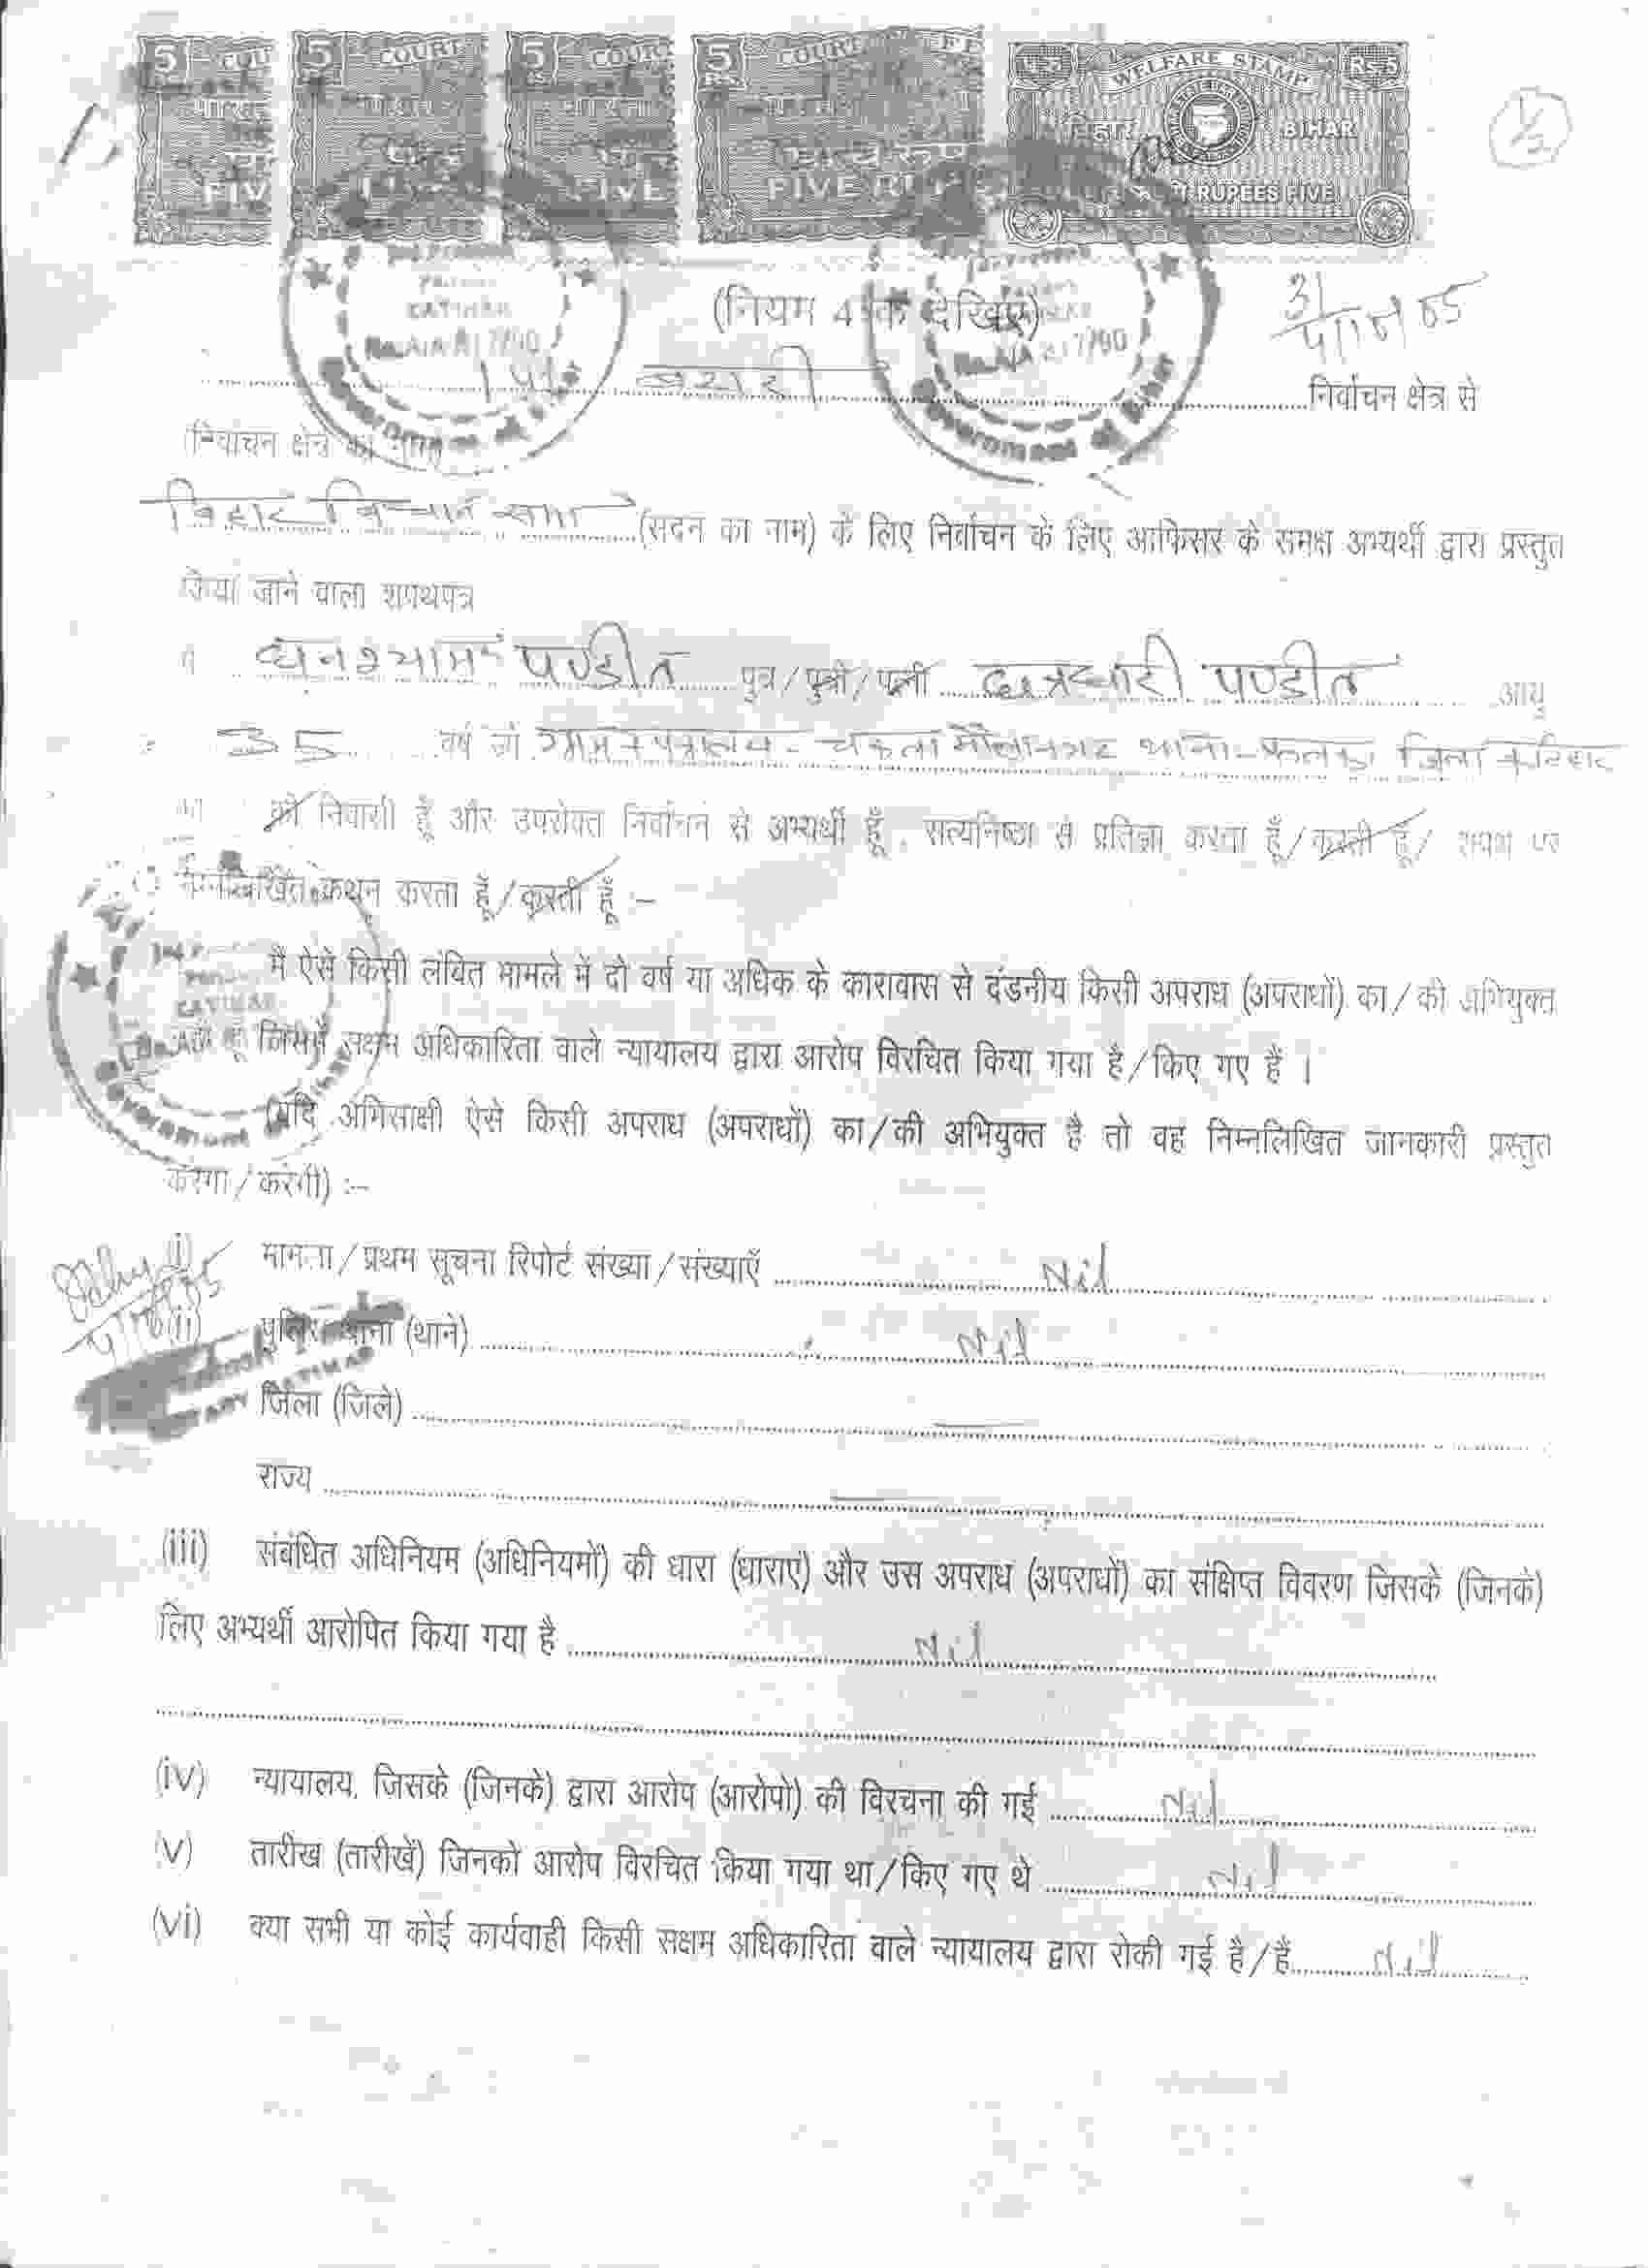 5 COU 5 COURT 5 COURT 5 COURT FEE WELFARE STAMP Rs 5
Rs.
बिहार BIHAR
FIV FIVE FIVE RUP RUPEES FIVE
1/2
(नियम 4 क देखिए)
31
4/10/05
बरारी निर्वाचन क्षेत्र से
(निर्वाचन क्षेत्र का नाम)
बिहार विधान सभा (सदन का नाम) के लिए निर्वाचन के लिए आफिसर के समक्ष अभ्यर्थी द्वारा प्रस्तुत
किया जाने वाला शपथपत्र
मैं घनश्याम पण्डीत पुत्र/पुत्री/पत्नी छत्रधारी पण्डीत आयु
35 वर्ष जो ग्राम+पत्रालय- चकला मौलानगर थाना-फलका जिला कटिहार
का को निवासी हूँ और उपरोक्त निर्वाचन से अभ्यर्थी हूँ, सत्यनिष्ठा से प्रतिज्ञा करता हूँ/करती हूँ/ शपथ पर
निम्नलिखित कथन करता हूँ/करती हूँ :–
मैं ऐसे किसी लंबित मामले में दो वर्ष या अधिक के कारावास से दंडनीय किसी अपराध (अपराधों) का/की अभियुक्त
नहीं हूँ जिसमें सक्षम अधिकारिता वाले न्यायालय द्वारा आरोप विरचित किया गया है/किए गए हैं ।
(यदि अभिसाक्षी ऐसे किसी अपराध (अपराधों) का/की अभियुक्त है तो वह निम्नलिखित जानकारी प्रस्तुत
करेगा/करेगी) :–
(i) मामला/प्रथम सूचना रिपोर्ट संख्या/संख्याएँ Nil
(ii) पुलिस थाना (थाने) Nil
जिला (जिले) —
राज्य —
(iii) संबंधित अधिनियम (अधिनियमों) की धारा (धाराएं) और उस अपराध (अपराधों) का संक्षिप्त विवरण जिसके (जिनके)
लिए अभ्यर्थी आरोपित किया गया है Nil
(iv) न्यायालय, जिसके (जिनके) द्वारा आरोप (आरोपो) की विरचना की गई Nil
(v) तारीख (तारीखें) जिनको आरोप विरचित किया गया था/किए गए थे Nil
(vi) क्या सभी या कोई कार्यवाही किसी सक्षम अधिकारिता वाले न्यायालय द्वारा रोकी गई है/हैं Nil